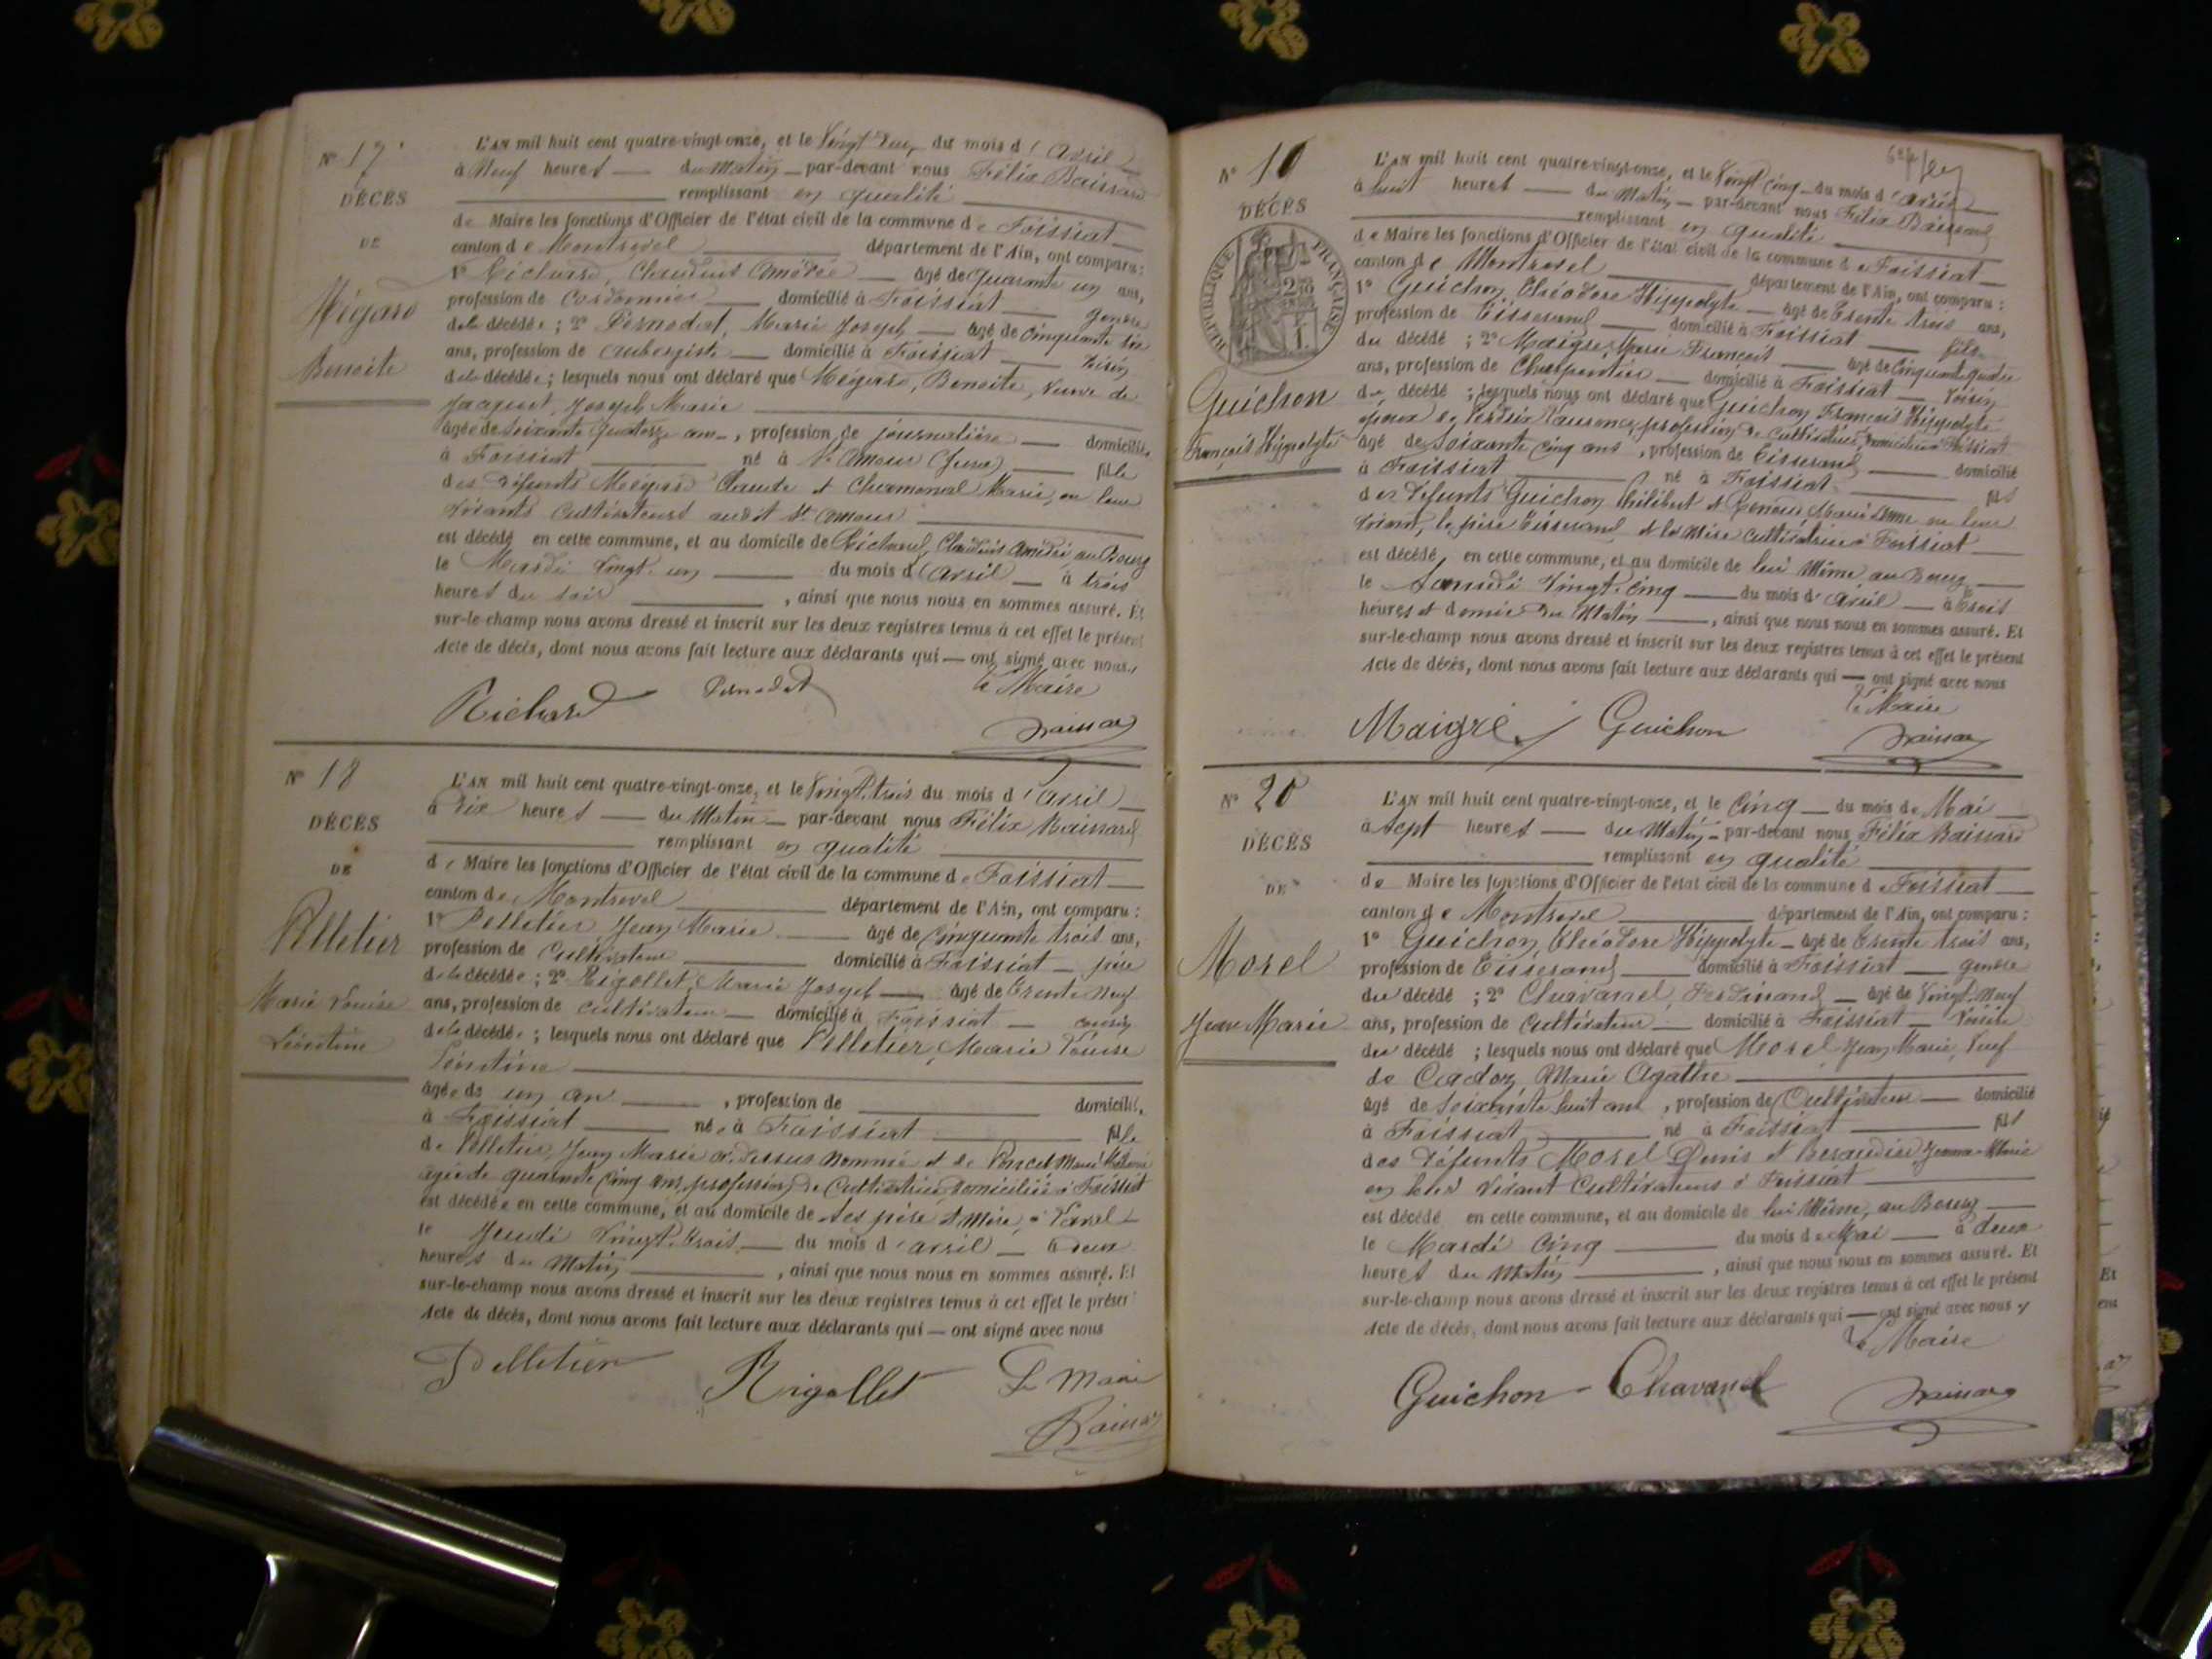 N° 17
DÉCÈS
DE
Mégard
Benoite
L'AN mil huit cent quatre-vingt-onze, et le Vingt deux du mois d'Avril
à Neuf heures du Matin par-devant nous Félix Baissard
remplissant en qualité
de Maire les fonctions d'Officier de l'état civil de la commune de Foissiat
canton de Montrevel département de l'Ain, ont comparu :
1° Richard, Claudius Amédée âgé de Quarante un ans,
profession de Cordonnier domicilié à Foissiat gendre
de la décédée ; 2° Pernodat, Marie Joseph âgé de Cinquante six
ans, profession de aubergiste domicilié à Foissiat voisin
de la décédée ; lesquels nous ont déclaré que Mégard, Benoite, Veuve de
Jacquet, Joseph Marie
âgée de soixante Quatorze ans, profession de journalière domiciliée
à Foissiat né à St Amour (Jura) fille
des défunts Mégard Claude et Marie, en leur
vivants Cultivateurs audit St Amour
est décédé en cette commune, et au domicile de Richard, Claudius Amédée au Bourg
le Mardi Vingt-un du mois d'Avril à trois
heures du soir , ainsi que nous nous en sommes assuré. Et
sur-le-champ nous avons dressé et inscrit sur les deux registres tenus à cet effet le présent
Acte de décès, dont nous avons fait lecture aux déclarants qui — ont signé avec nous.
Richard Pernodat Le Maire
N° 18
DÉCÈS
DE
Pelletier
Marie Louise
Léontine
L'AN mil huit cent quatre-vingt-onze, et le Vingt-trois du mois d'Avril
à Dix heures du Matin par-devant nous Félix Baissard
remplissant en qualité
de Maire les fonctions d'Officier de l'état civil de la commune de Foissiat
canton de Montrevel département de l'Ain, ont comparu :
1° Pelletier Jean Marie âgé de Cinquante trois ans,
profession de Cultivateur domicilié à Foissiat père
de la décédée ; 2° Rigollet, Marie Joseph âgé de Trente Neuf
ans, profession de cultivateur domicilié à Foissiat cousin
de la décédée ; lesquels nous ont déclaré que Pelletier, Marie Louise
Léontine
âgée de un an , profession de domiciliée,
à Foissiat née à Foissiat fille
de Pelletier, Jean Marie ci-dessus nommé et de Poncet Marie
âgée de quarante Cinq ans, profession de Cultivatrice domiciliée à Foissiat
est décédée en cette commune, et au domicile de ses père et Mère, à
le Jeudi Vingt-trois du mois d'Avril à deux
heures du Matin , ainsi que nous nous en sommes assuré. Et
sur-le-champ nous avons dressé et inscrit sur les deux registres tenus à cet effet le présent
Acte de décès, dont nous avons fait lecture aux déclarants qui — ont signé avec nous
Pelletier Rigollet Le Maire
N° 19
DÉCÈS
RÉPUBLIQUE FRANÇAISE
Guichon
François Hippolyte
L'AN mil huit cent quatre-vingt-onze, et le Vingt cinq du mois d'Avril
à huit heures du Matin par-devant nous Félix Baissard
remplissant en qualité
de Maire les fonctions d'Officier de l'état civil de la commune de Foissiat
canton de Montrevel département de l'Ain, ont comparu :
1° Guichon Théodore Hippolyte âgé de Trente trois ans,
profession de Tisserand domicilié à Foissiat fils
du décédé ; 2° Maigre, Marie François âgé de Cinquante quatre
ans, profession de Charpentier domicilié à Foissiat Voisin
du décédé ; lesquels nous ont déclaré que Guichon, François Hippolyte
époux de profession de cultivatrice, domiciliée à Foissiat
âgé de Soixante Cinq ans , profession de Tisserand domicilié
à Foissiat né à Foissiat fils
des défunts Guichon Philibert et Marie Anne en leur
vivant, le père Tisserand et la Mère cultivatrice à Foissiat
est décédé, en cette commune, et au domicile de lui Même, au Bourg
le Samedi Vingt-cinq du mois d'Avril à trois
heures et demie du Matin , ainsi que nous nous en sommes assuré. Et
sur-le-champ nous avons dressé et inscrit sur les deux registres tenus à cet effet le présent
Acte de décès, dont nous avons fait lecture aux déclarants qui — ont signé avec nous
Maigre Guichon Le Maire
N° 20
DÉCÈS
DE
Morel
Jean Marie
L'AN mil huit cent quatre-vingt-onze, et le Cinq du mois de Mai
à Sept heures du Matin par-devant nous Félix Baissard
remplissant en qualité
de Maire les fonctions d'Officier de l'état civil de la commune de Foissiat
canton de Montrevel département de l'Ain, ont comparu :
1° Guichon Théodore Hippolyte âgé de Trente trois ans,
profession de Tisserand domicilié à Foissiat gendre
du décédé ; 2° Chavanel, Ferdinand âgé de Vingt-Neuf
ans, profession de Cultivateur domicilié à Foissiat Voisin
du décédé ; lesquels nous ont déclaré que Morel Jean Marie, Veuf
de Cadoz, Marie Agathe
âgé de soixante huit ans , profession de Cultivateur domicilié
à Foissiat né à Foissiat fils
des défunts Morel Denis et Jeanne-Marie
en leur vivant Cultivateurs à Foissiat
est décédé en cette commune, et au domicile de lui Même, au Bourg
le Mardi Cinq du mois de Mai à deux
heures du Matin , ainsi que nous nous en sommes assuré. Et
sur-le-champ nous avons dressé et inscrit sur les deux registres tenus à cet effet le présent
Acte de décès, dont nous avons fait lecture aux déclarants qui — ont signé avec nous
Le Maire
Guichon Chavanel